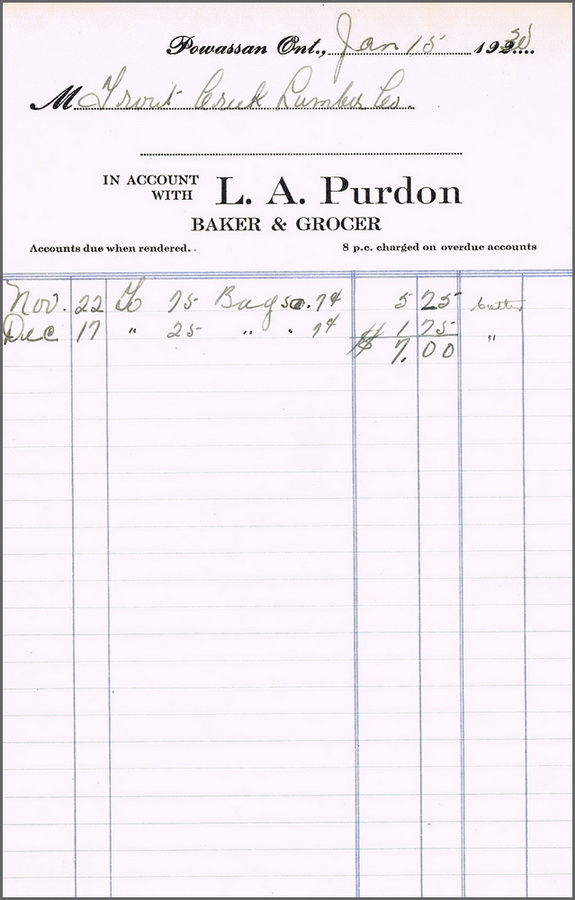 Powassan Ont., Jan 15 1930
M Trout Creek Lumber Co.
IN ACCOUNT WITH L. A. Purdon
BAKER & GROCER
Accounts due when rendered. . 8 p.c. charged on overdue accounts
Nov. 22 To 75 Bags @ .7¢ 5 25
Dec 17 " 25 " . 7¢ $ 1 75 "
$ 7. 00